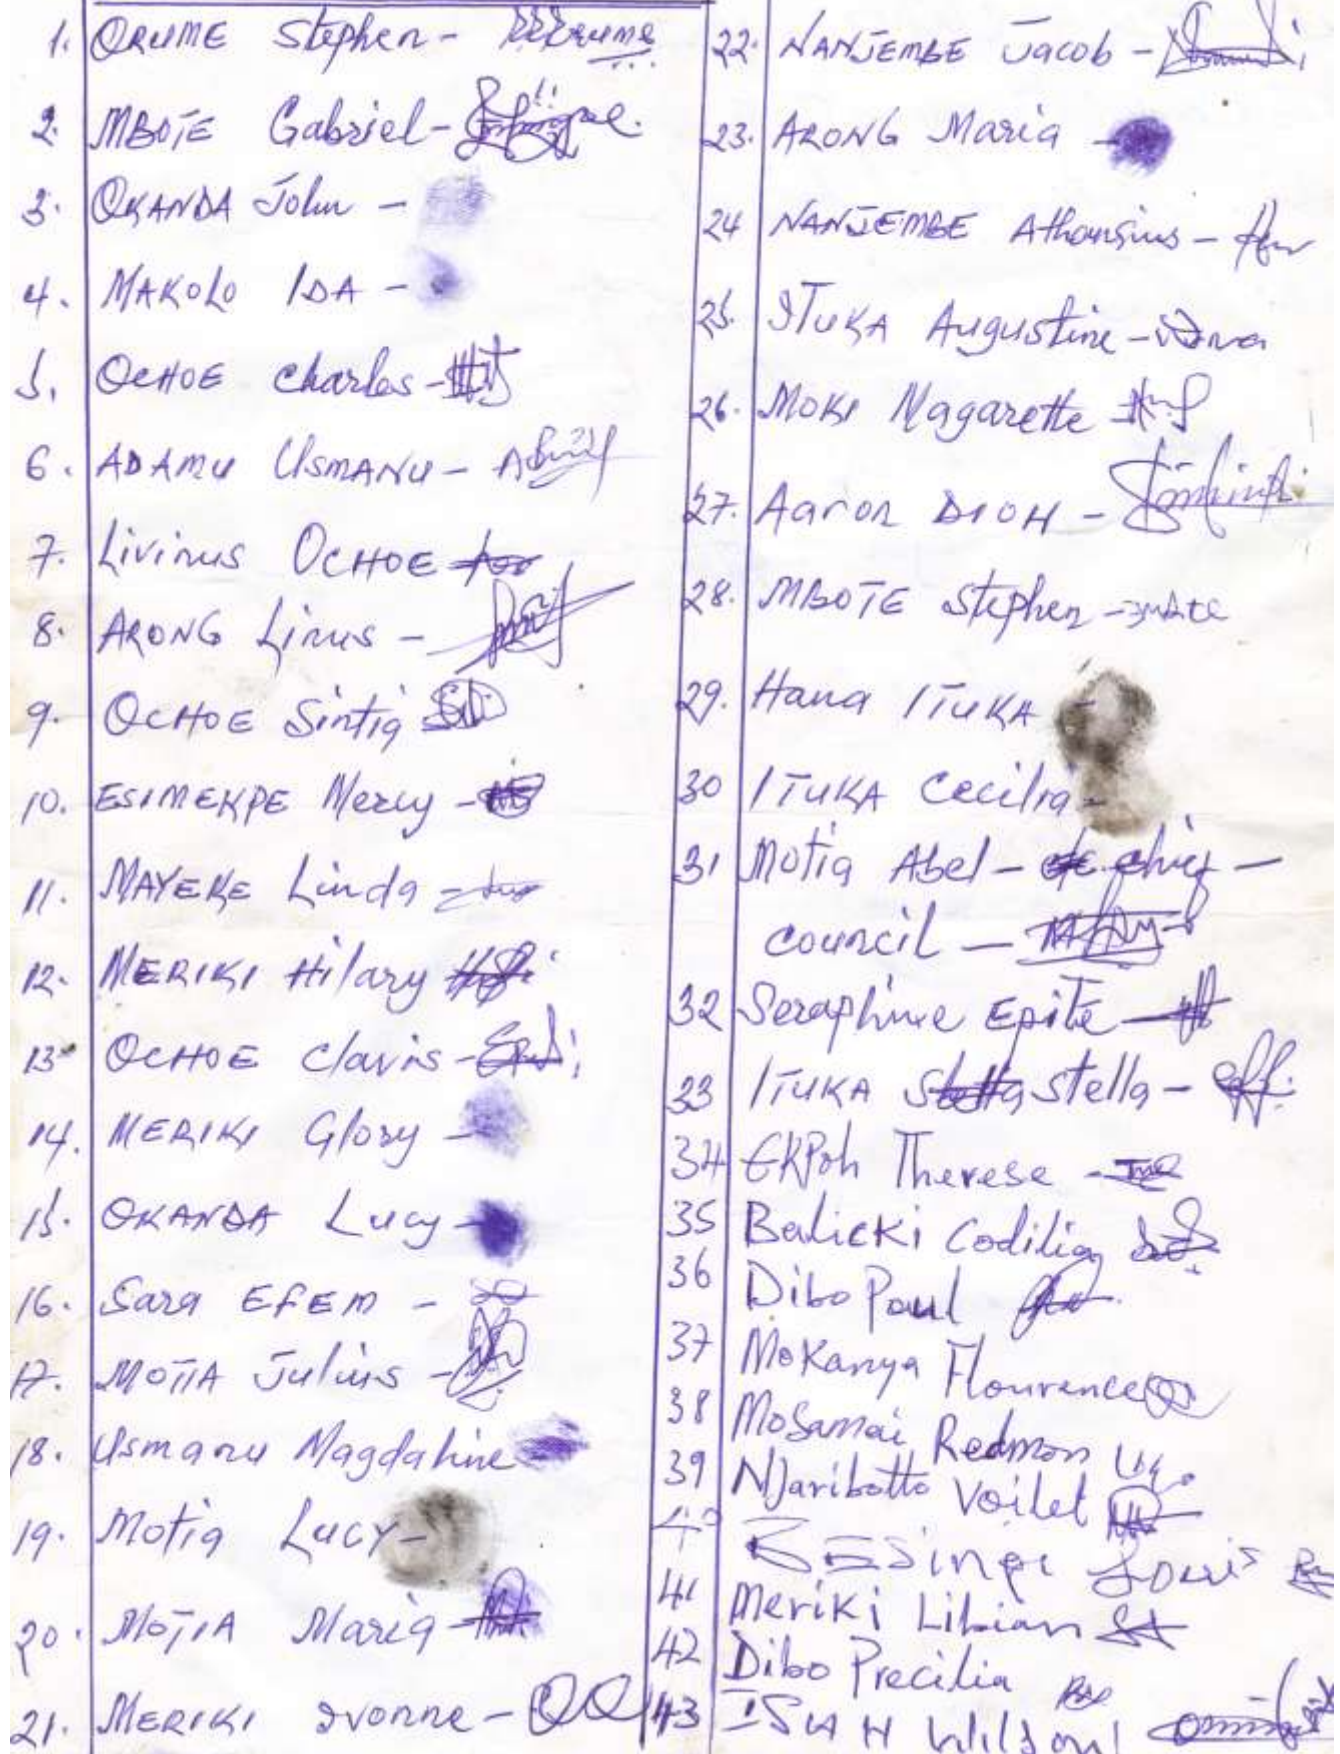 1. ORUME Stephen -
2. MBOTE Gabriel -
3. OKANDA John -
4. MAKOLO IDA -
5. OCHOE Charles -
6. ADAMU USMANU -
7. Livinus OCHOE
8. ARONG Linus -
9. OCHOE Sintia
10. ESIMEKPE Mercy -
11. MAYEKE Linda -
12. MERIKI Hilary
13 OCHOE Clavis -
14. MERIKI Glory -
15. OKANDA Lucy -
16. Sara EFEM -
17. MOTIA Julius -
18. Usmanu Magdaline
19. Motia LUCY -
20. MOTIA Maria -
21. MERIKI Ivonne -
22. NANJEMBE Jacob -
23. ARONG Maria -
24 NANJEMBE Athansius -
25. ITUKA Augustine -
26. MOKI Magarette
27. Aaron DIOH -
28. MBOTE Stephen -
29. Hana ITUKA
30 ITUKA Cecilia -
31 Motia Abel - chief -
council -
32 Seraphine Epite -
33 ITUKA Stella -
34 EKPoh Therese -
35 Balicki Codilia
36 Dibo Paul
37 Mokanya Flourence
38 Mosamai Redmon
39 NJaribotto Voilet
40 BESinge Louis
41 Meriki Libian
42 Dibo Precilia
43 ISUAH Wilson